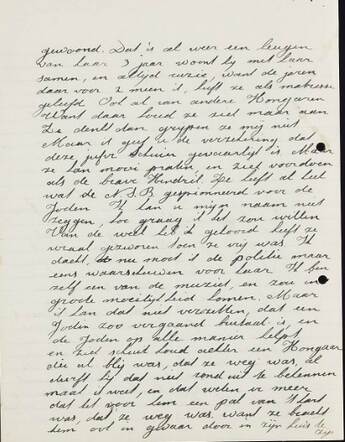 gewoond. Dat is al weer een leugen
van haar 3 jaar woont hij met haar
samen, en altijd ruzie, want de jaren
daar voor 2 meen ik, heeft ze als maitresse
geleefd. Ook al van andere Hongaren
Want daar houd ze zich maar aan
Ze denkt dan grijpen ze mij niet
Maar ik geef u de verzekering dat
deze gevaarlijk is Maar
ze kan mooi praten en zich voordoen
als de brave Hendrik Ze heeft al heel
wat de N.S.B. gespionneerd voor de
Joden Ik kan u mijn naam niet
zeggen, hoe graag ik het zou willen
Van de week heb ik gehoord heeft ze
wraak gezworen toen ze vrij was. Ik
dacht, nu moet ik de politie maar
eens waarschuwen voor haar Ik ben
zelf een van de muziek, en zou in
groote moeilijkheid komen. Maar
ik kan dat niet verzetten, dat een
Joden zoo vergaand brutaal is, en
de Joden op alle manier helpt
en zich schuil houd achter een Hongaar
die uit blij was, dat ze weg was, al
durft hij dat niet rond uit te bekennen
maar ik weet, en dat weten er meer
dat het voor hem een pak van 't hart
was, dat ze weg was. want ze
hem ook in gevaar door in zijn huis te
zijn